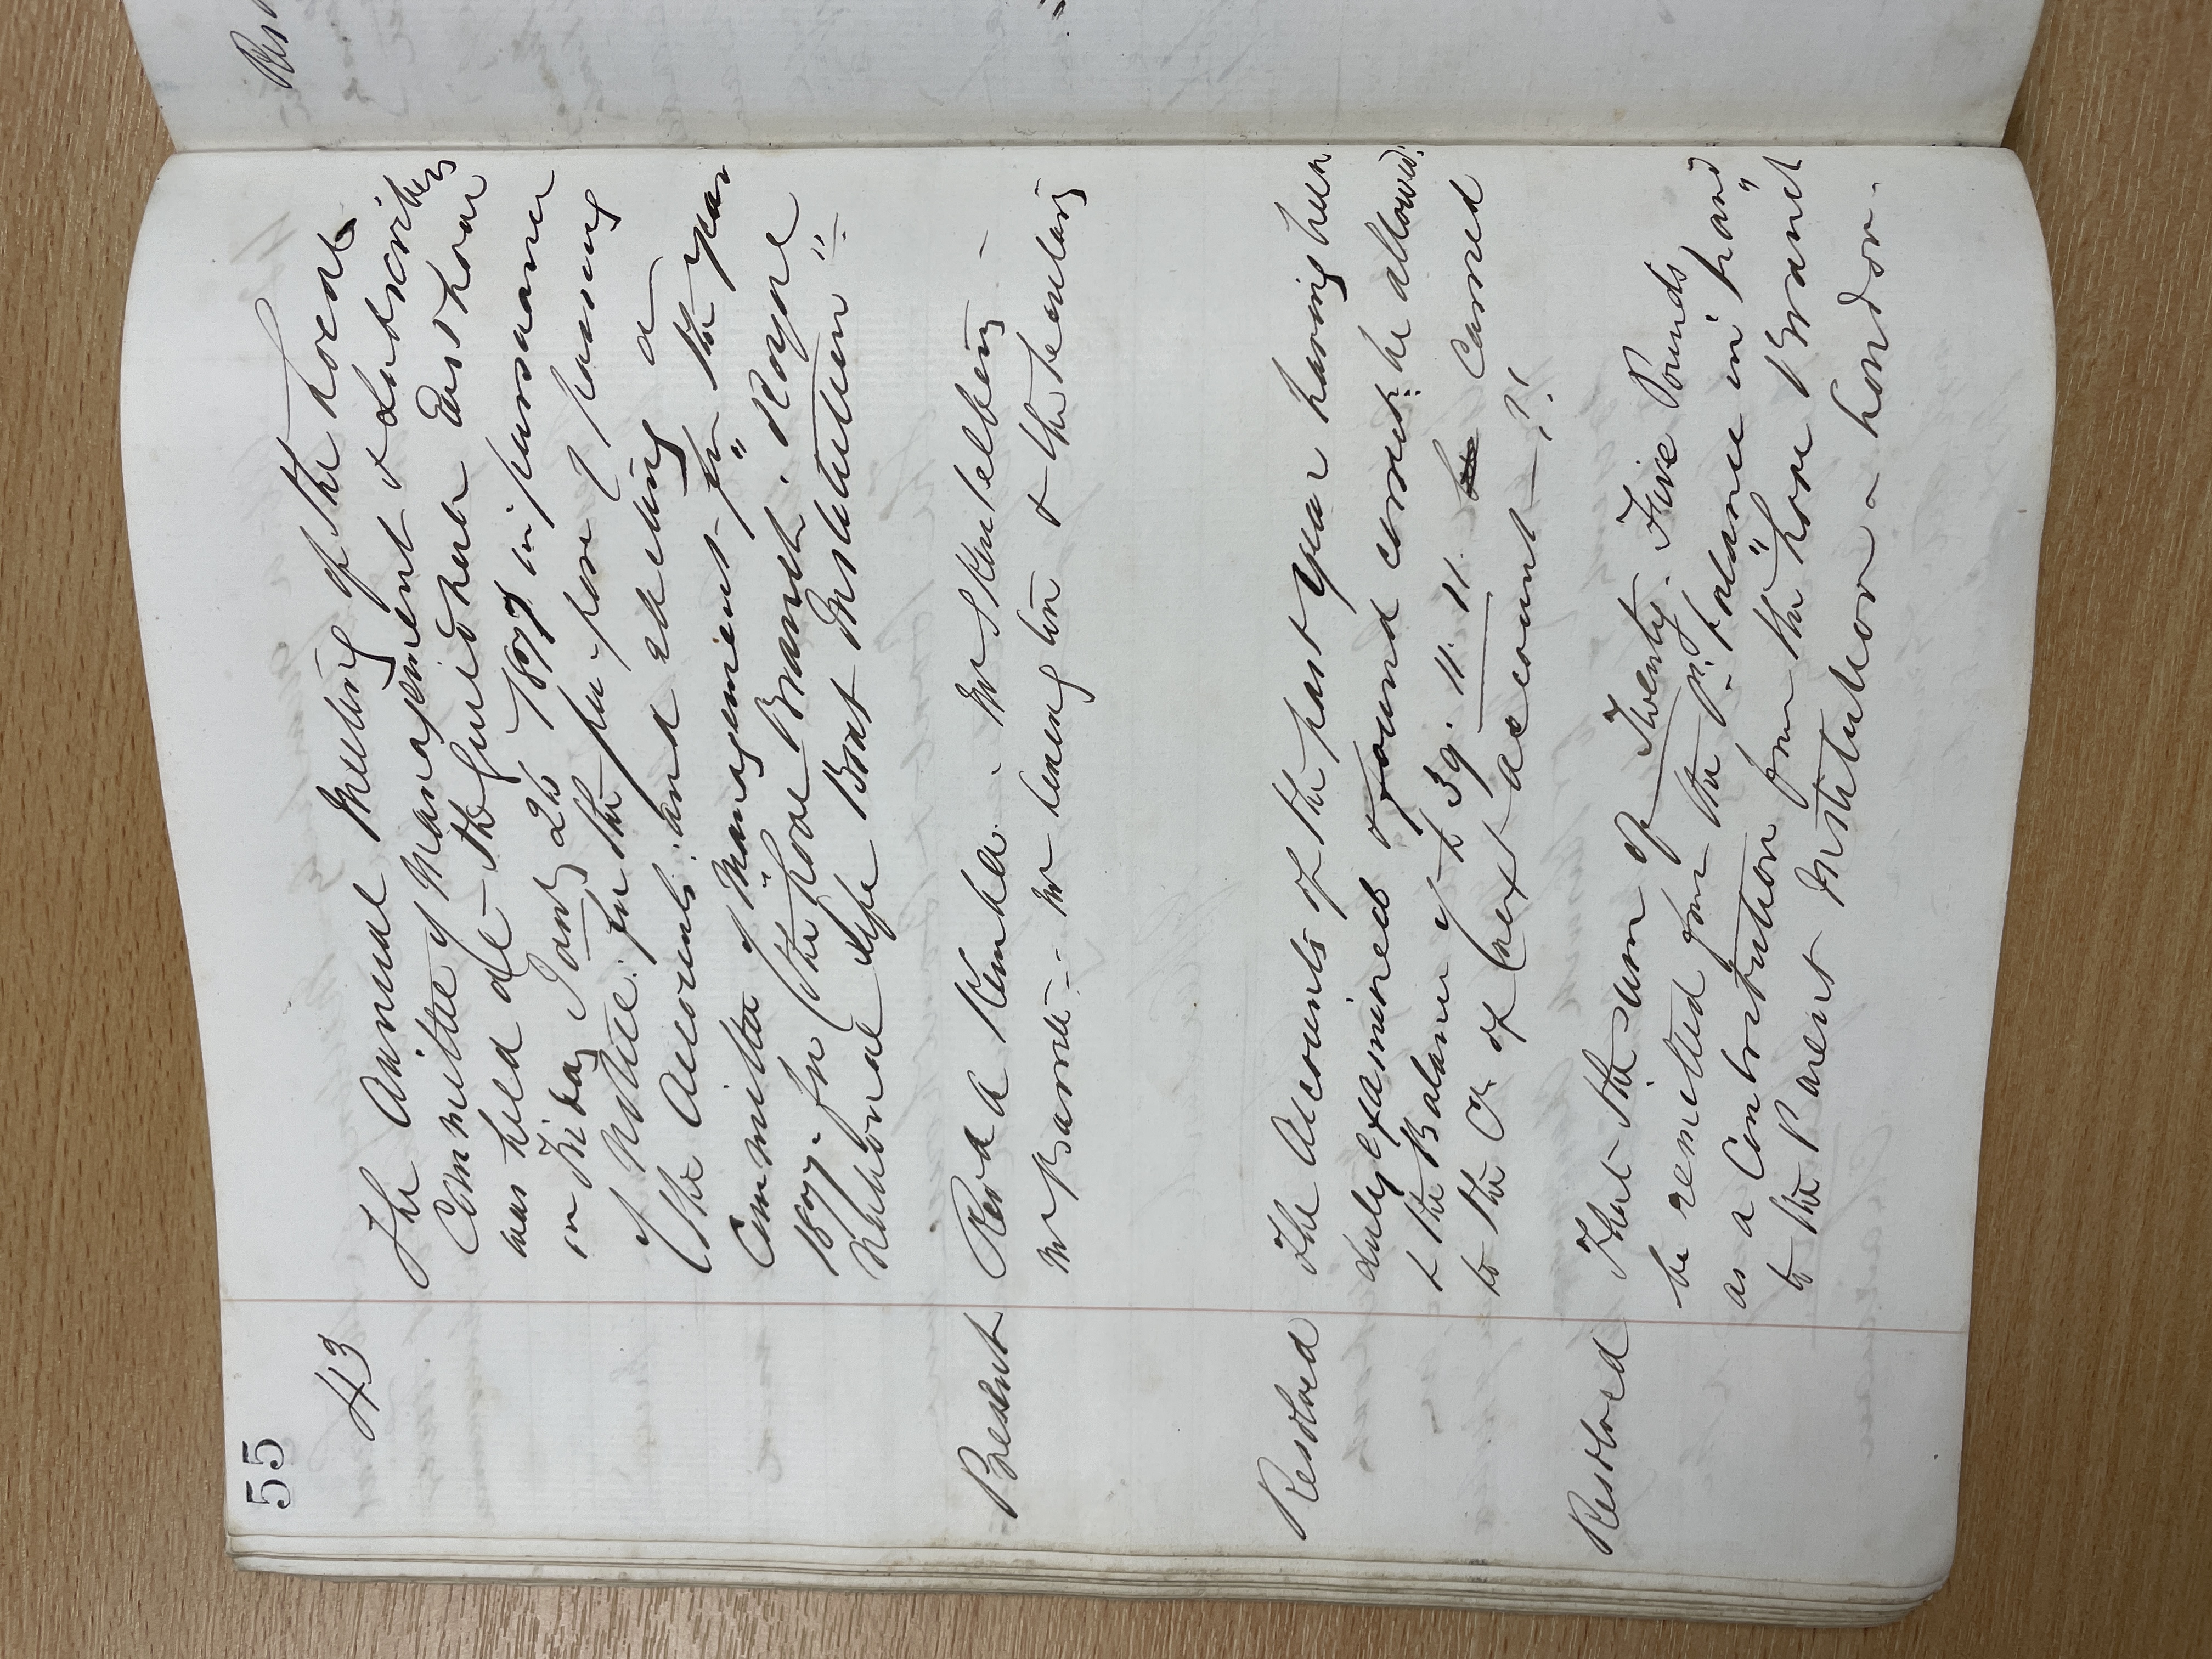 55
43
The Annual Meeting of the Local
Committee of Management & Subscribers
was held at - The Guildhall East Looe
on Friday Jany 26 1877 in pursuance
of Notice: for the purpose of passing
the Accounts: and electing a
Committee of "Management" for the year
1877. for the Local Branch. Royal
National Life Boat Institution "
Present Revd A Kimber. Mr Stentelbery -
Mr Barrett - Mr Leavington & the Secretary
Resolved The Accounts of the past Year having been
duly examined & found correct: be allowed:
& the Balance of £ 39. 11. 11. Carried
to the Cr of next account
Resolved That the sum of Twenty. Five Pounds
be remitted from the pt. balance in hand
as a Contribution from the "Looe Branch"
to the Parent Institution - London -
Res